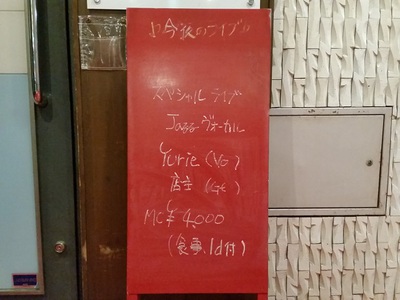 ♪今夜のライブ♪
スペシャル ライブ
Jazz ヴォーカル
Yurie (VO)
店主 (Gt)
MC ¥4,000
(食事、1d付)